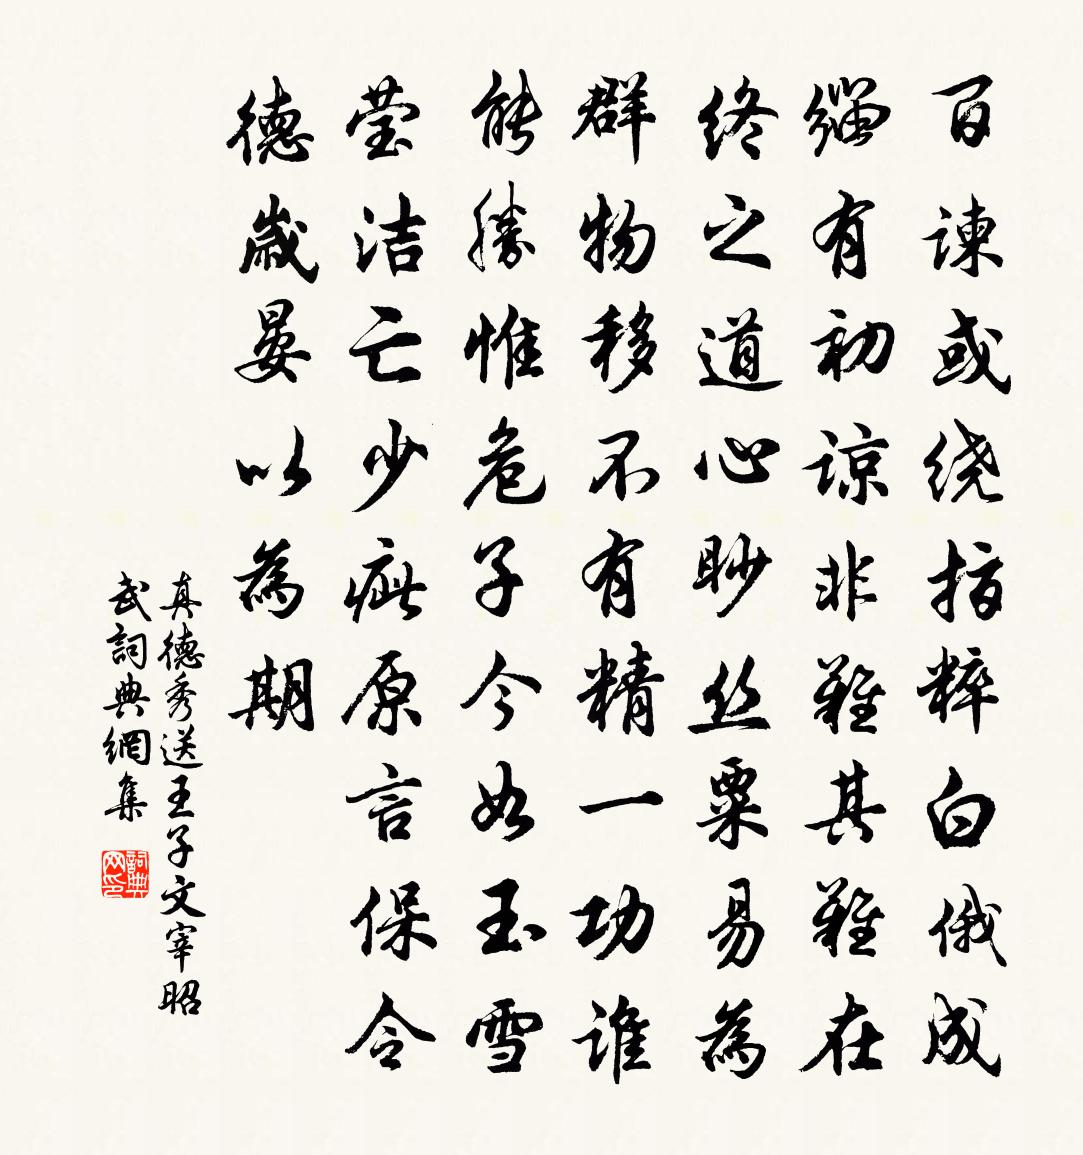 百谏或绕指粹白俄成
缁有初谅非難其難在
终之道心眇丝粟易為
群物移不有精一功谁
能勝惟危子今如玉雪
莹洁亡少疵原言保令
德歲晏以為期
真德秀送王子文宰昭
武詞典網集
詞典
网印